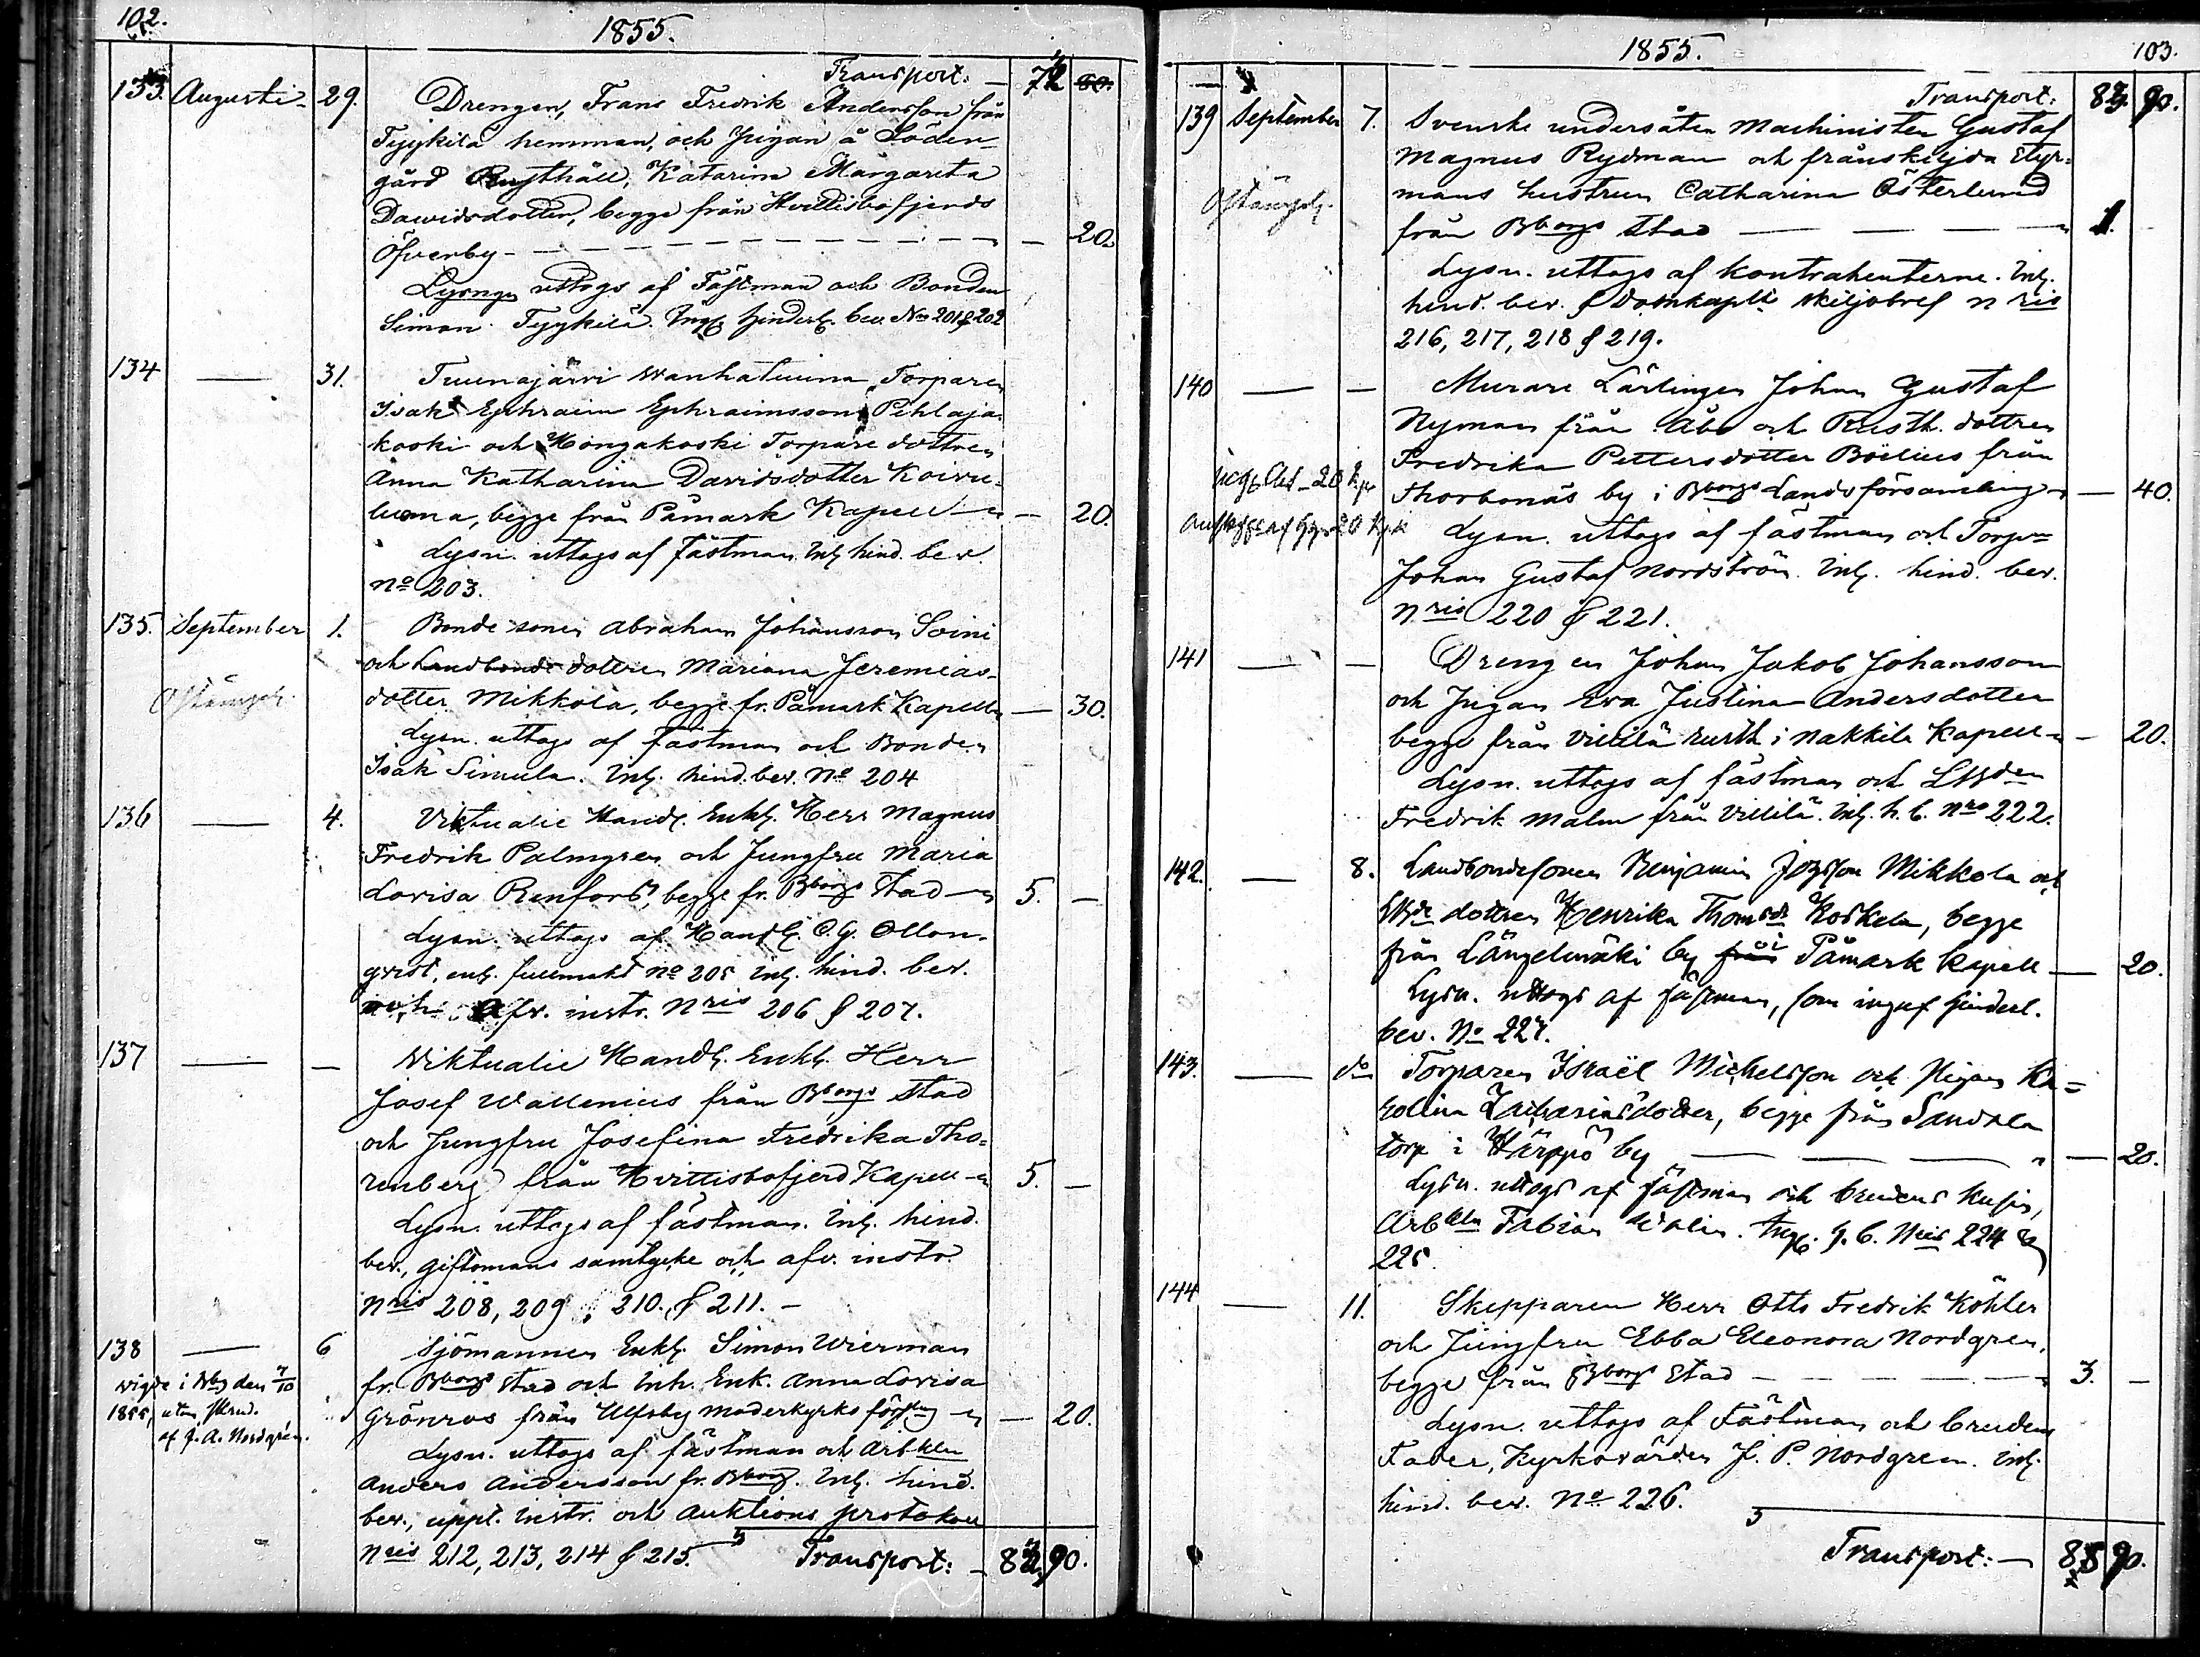 102.
1855.
Transport: — 72 60.
133. Augusti 29. Drengen, Frans Fredrik Andersson från
Tyykilä hemman, och Pigan å Söder-
gård Rusthåll, Katarina Margareta
Davidsdotter, begge från Hvittisbofjerds
Öfverby — — 20.
Lysnge uttogs af Fästman och Bonden
Simon Tyykilä. Ingl hinderl. bev. Nris 201 & 202
134 — 31. Tuunajärvi Wanhatuuna Torparen
Isak Ephraim Ephraimsson Pihlaja-
koski och Hongakoski Torpare dottren
Anna Katharina Davidsdotter Koivu-
luoma, begge från Påmark Kapell — 20.
Lysn. uttogs af fästman. Inl. hind. bev.
No 203.
135. September 1. Bonde sonen Abraham Johansson Soini
och Landbonde dottren Mariana Jeremias-
dotter Mikkola, begge fr. Påmark Kapell — 30.
Lysn. uttogs af fästman och Bonden
Isak Simula. Inl. hind. bev. No 204
136 — 4. Viktualie Handl. Enkl. Herr Magnus
Fredrik Palmgren och Jungfru Maria
Lovisa Renfors, begge fr. Bborgs stad — 5. —
Lysn. uttogs af Handl. C. G. Ollon-
qvist, enl. fullmakt No 205 inl. hind. bev.
och afv. instr. Nris 206 & 207.
137 — — Wiktualie Handl. Enkl. Herr
Josef Wallenius från Bborgs stad
och Jungfru Josefina Fredrika Tho-
renberg från Hvittisbofjerd Kapell — 5. —
Lysn. uttogs af fästman. Inl. hind.
bev., giftomans samtycke och afv. instr.
Nris 208, 209, 210 & 211. —
138 — 6 Sjömannen Enkl. Simon Wierman
wigde i Bbg den 7/10
fr. Bborgs stad och Inh. Enk. Anna Lovisa
1855, utan skrud.
Grönros från Ulfsby moderkyrko förs — 20.
af J. A. Nordgrén.
Lysn. uttogs af fästman och Arbkln
Anders Andersson fr. Bborg. Inl. hind.
bev., uppl. instr. och Auktions protokoll
Nris 212, 213, 214 & 215. Transport: — 82 90.
1855. 103.
Transport: 82 90.
139 September 7. Svenske undersåten Machinisten Gustaf
Magnus Rydman och frånskiljda Styr-
mans hustrun Catharina Österlund
från Bborgs stad — 1.
Lysn. uttogs af kontrahenterne. Inl.
hind. bev. & Domkaplts skiljobref Nris
216, 217, 218 & 219.
140 — — Murare Lärlingen Johan Gustaf
Nyman från Åbo och Rusth. dottren
Fredrika Pettersdotter Böelius från
Thorbonäs by i Bborgs Landsförsamling — 40.
Lysn. uttogs af fästman och Torpn
Johan Gustaf Nordström. Inl. hind. bev.
Nris 220 & 221.
141 — — Drengen Johan Jakob Johansson
och Pigan Eva Justina Andersdotter
begge från Villilä rusth i Nakkila Kapell — 20.
Lysn. uttogs af fästman och
Fredrik Malm från Villilä. Inl. h. b. Nro 222.
142. — 8. Landbondesonen Benjamin Mikkola och
dottren Henrika Thomsdr Koskela, begge
från Längelmäki by från i Påmark kapell — 20.
Lysn. uttogs af fästman, som ingaf hinderl.
bev. No 227.
143. — do Torparen Israël Michelsson och Pigan Ka-
rolina Zachariasdotter, begge från Sandala
torp i Härpö by — 20.
Lysn. uttogs af fästman och brudens kusin,
Arbkln Fabian Walin. Ingl. h. b. Nris 224 &
225.
144 — 11. Skepparen Herr Otto Fredrik Köhler
och Jungfru Ebba Eleonora Nordgren,
begge från Bborgs Stad — 3. —
Lysn. uttogs af Fästman och brudens
Fader, Kyrkovärden J. P. Nordgren. Inl.
hind. bev. No 226.
Transport: — 85 90.